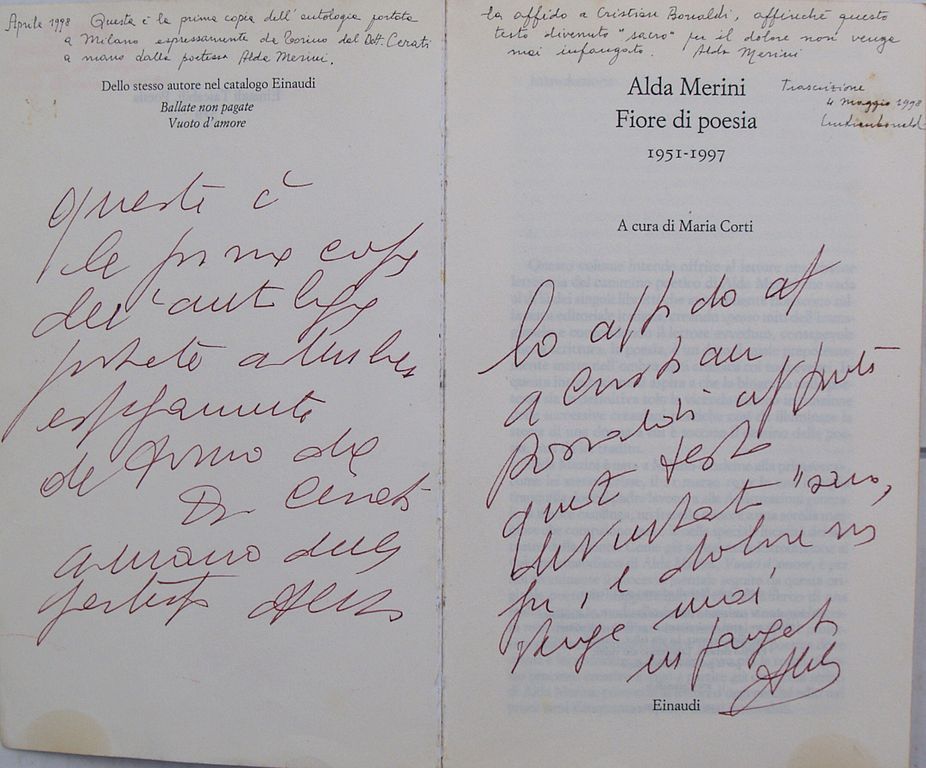 Aprile 1998 Questa è la prima copia dell'antologia portata
a Milano espressamente da Torino dal Dott. Cerati
a mano dalla poetessa Alda Merini.
Dello stesso autore nel catalogo Einaudi
Ballate non pagate
Vuoto d'amore
questa è
la prima copia
dell'antologia
portata a Milano
espressamente
da Torino dal
Dr Cerati
a mano dalla
poetessa Alda
la affido a Cristian Bonaldi, affinché questo
testo divenuto "sacro" per il dolore non venga
mai infangato. Alda Merini
Trascrizione
4 maggio 1998
Alda Merini
Fiore di poesia
1951-1997
A cura di Maria Corti
lo affido
a Cristian
Bonaldi affinché
questo testo
diventato "sacro"
per il dolore non
venga mai
infangato
Alda
Einaudi